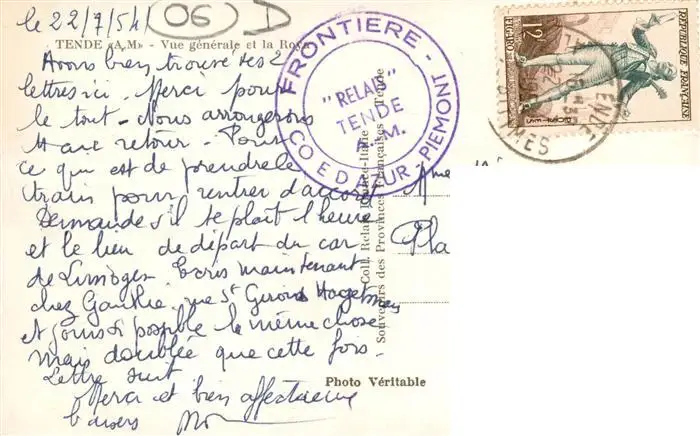 le 22/7/54
06 D
TENDE (A.M.) - Vue générale et la Roya
Avons bien trouvé tes 2
lettres ici. Merci pour
le tout. Nous arrangerons
au retour. Pour
ce qui est de prendre le
train pour rentrer d'accord
Demande s'il te plaît l'heure
et le lieu de départ du car
de Limoges. Écris maintenant
chez Gauthie rue St Girons Hagetmau
et joins si possible la même chose
mais doublée que cette fois.
Lettre suit
Merci et bien affectueux
baisers
FRONTIERE - PIEMONT
CO E D'AZUR
"RELAIS"
TENDE
A.M.
Coll. Relais France-Italie
Souvenirs des Provinces Françaises Tende
Photo Véritable
12
FIGARO
REPUBLIQUE FRANÇAISE
TENDE
Mme
Pla